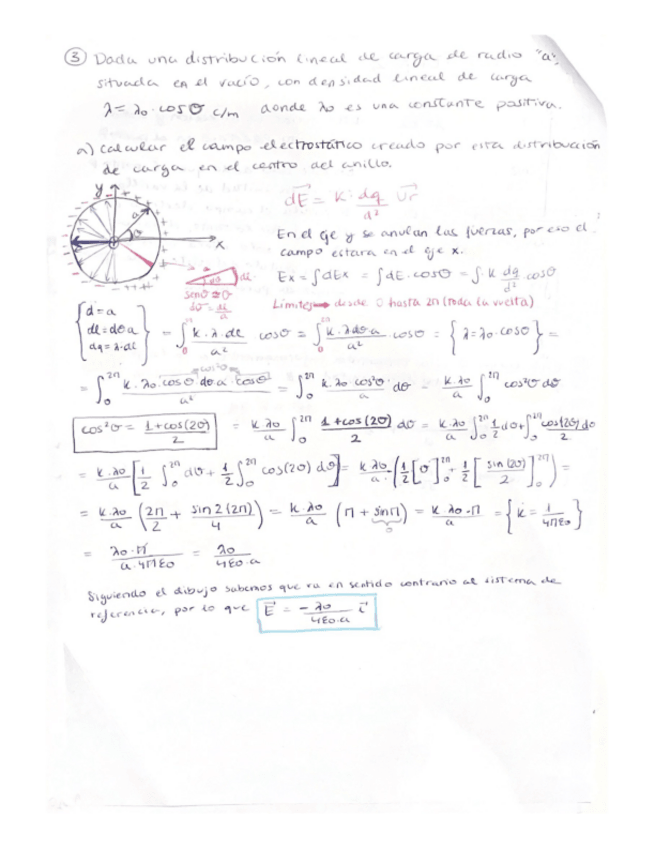 ③ Dada una distribución lineal de carga de radio "a",
situada en el vacío, con densidad lineal de carga
λ = λ0 · cos θ C/m donde λ0 es una constante positiva.
a) calcular el campo electrostático creado por esta distribución
de carga en el centro del anillo.
y
a
θ
x
dE = K · dq/d² Ur
En el eje y se anulan las fuerzas, por eso el
campo estara en el eje x.
Ex = ∫dEx = ∫dE · cosθ = ∫ K dq/d² cosθ
dl
senθ ≅ θ
dθ = dl/a
Límites → desde 0 hasta 2π (toda la vuelta)
{ d = a
dl = dθ a
dq = λ · dl } = ∫₀^2π K · λ · dl/a² cosθ = ∫₀^2π K · λ dθ a/a² · cosθ = { λ = λ0 · cosθ } =
cos²θ
= ∫₀^2π K · λ0 · cosθ dθ a · cosθ/a² = ∫₀^2π K · λ0 cos²θ/a dθ = K λ0/a ∫₀^2π cos²θ dθ
cos²θ = 1 + cos(2θ)/2 = K λ0/a ∫₀^2π 1 + cos(2θ)/2 dθ = K · λ0/a ∫₀^2π 1/2 dθ + ∫₀^2π cos(2θ) dθ/2
= K · λ0/a [ 1/2 ∫₀^2π dθ + 1/2 ∫₀^2π cos(2θ) dθ ] = K λ0/a · ( 1/2 [θ]₀^2π + 1/2 [ sin(2θ)/2 ]₀^2π ) =
= K · λ0/a ( 2π/2 + sin 2(2π)/4 ) = K · λ0/a ( π + sinπ ) = K · λ0 · π/a = { K = 1/4πε0 }
0
= λ0 · π/a · 4πε0 = λ0/4ε0 · a
Siguiendo el dibujo sabemos que va en sentido contrario al sistema de
referencia, por lo que E = - λ0/4ε0 · a i